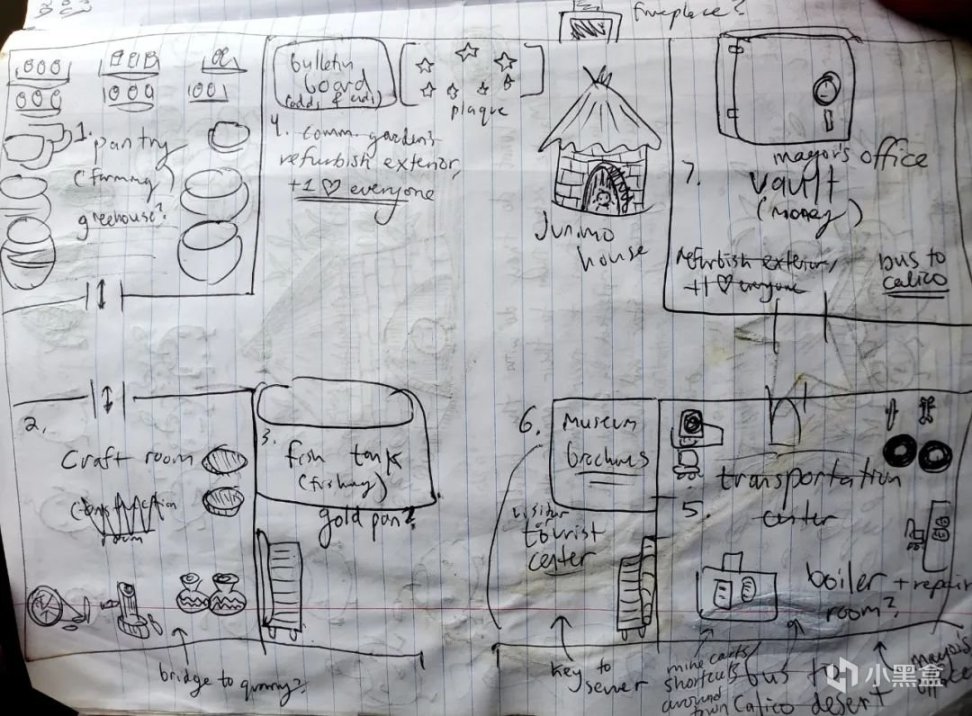 fireplace?
bulletin
board
(odds & ends)
plaque
1.
pantry
(farming)
greenhouse?
4. comm. gardens
refurbish exterior,
+1 ♡ everyone
Junimo
house
mayor's office
7.
vault
(money)
refurbish exterior,
+1 ♡ everyone
bus to
calico
2.
craft room
room
bridge to quarry?
3.
fish tank
(fishing)
gold pan?
6.
museum
visitor
or
tourist
center
key to
sewer
transportation
5.
center
boiler + repair
room?
mine carts/
shortcuts
around
town
bus to
Calico desert
mayor's
小黑盒